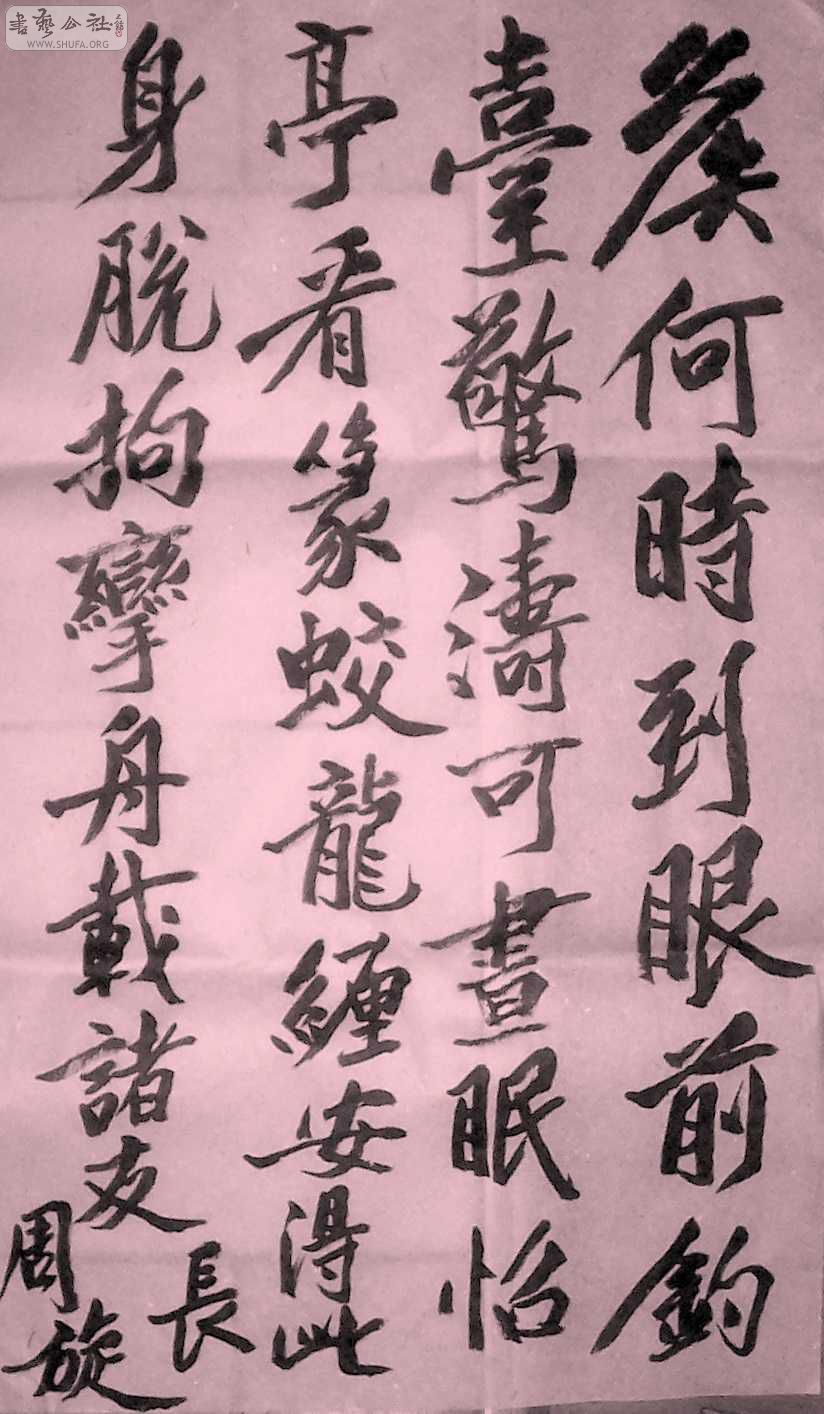 侯何時到眼前釣
臺驚濤可晝眠怡
亭看篆蛟龍纏安得此
身脫拘攣舟載諸友
長
周旋
書藝公社
WWW.SHUFA.ORG